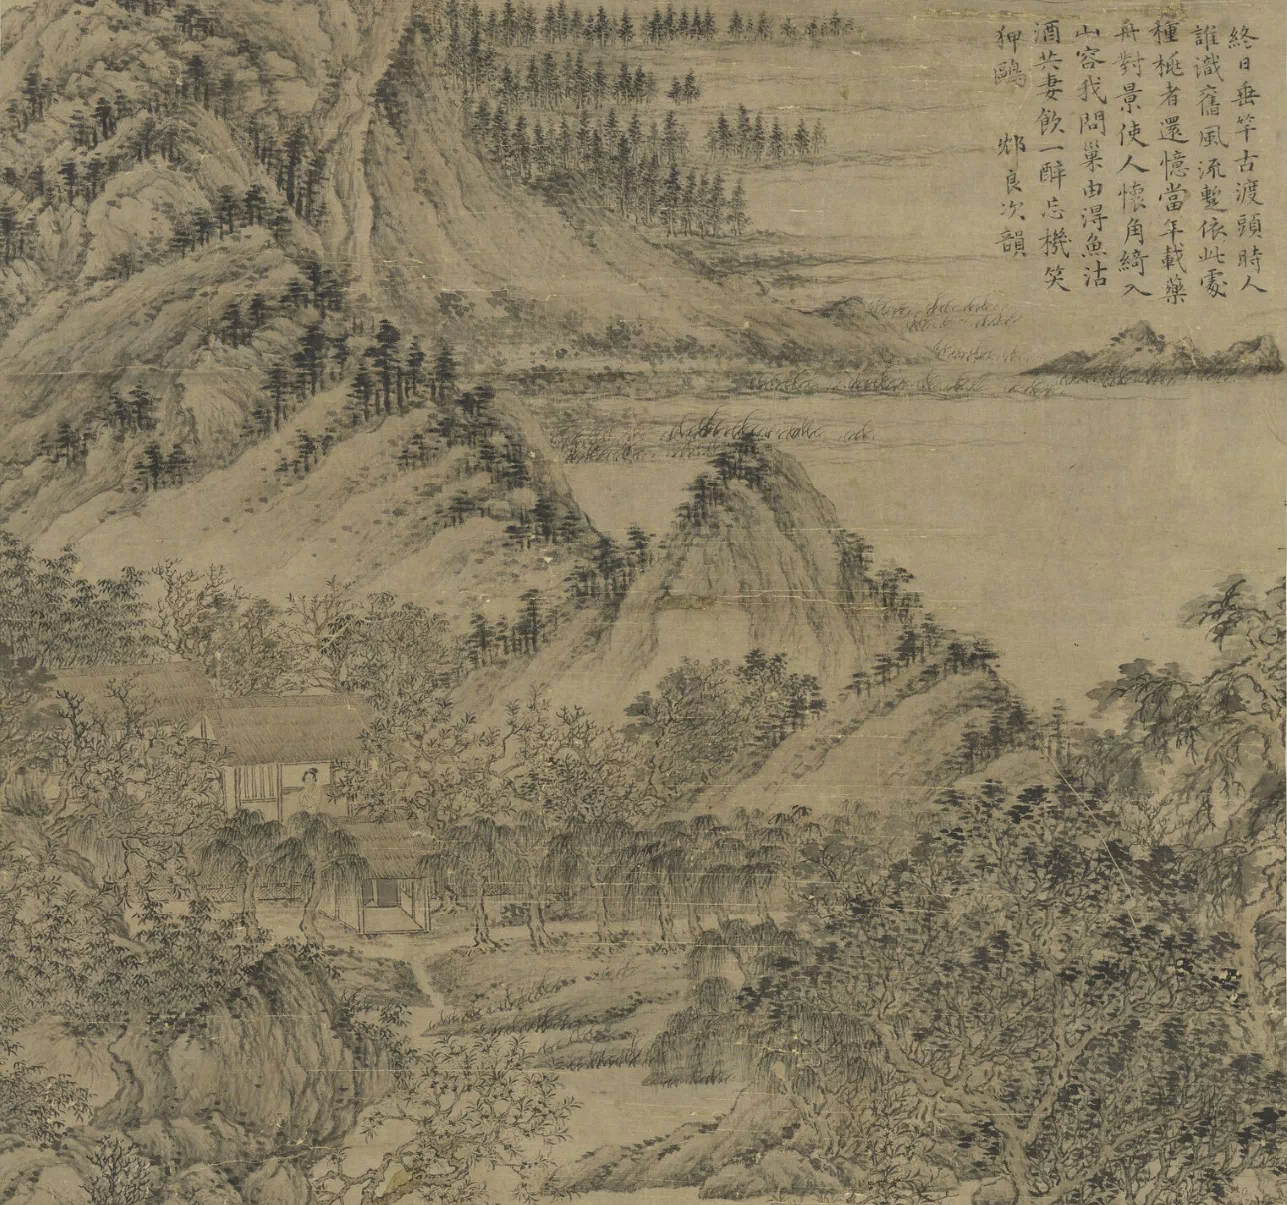 終日垂竿古渡頭時人
誰識舊風流蹔依此處
種桃者還憶當年載藥
舟對景使人懷角綺入
山容我問巢由淂魚沽
酒共妻飲一醉忘機笑
狎鷗　郯良次韻